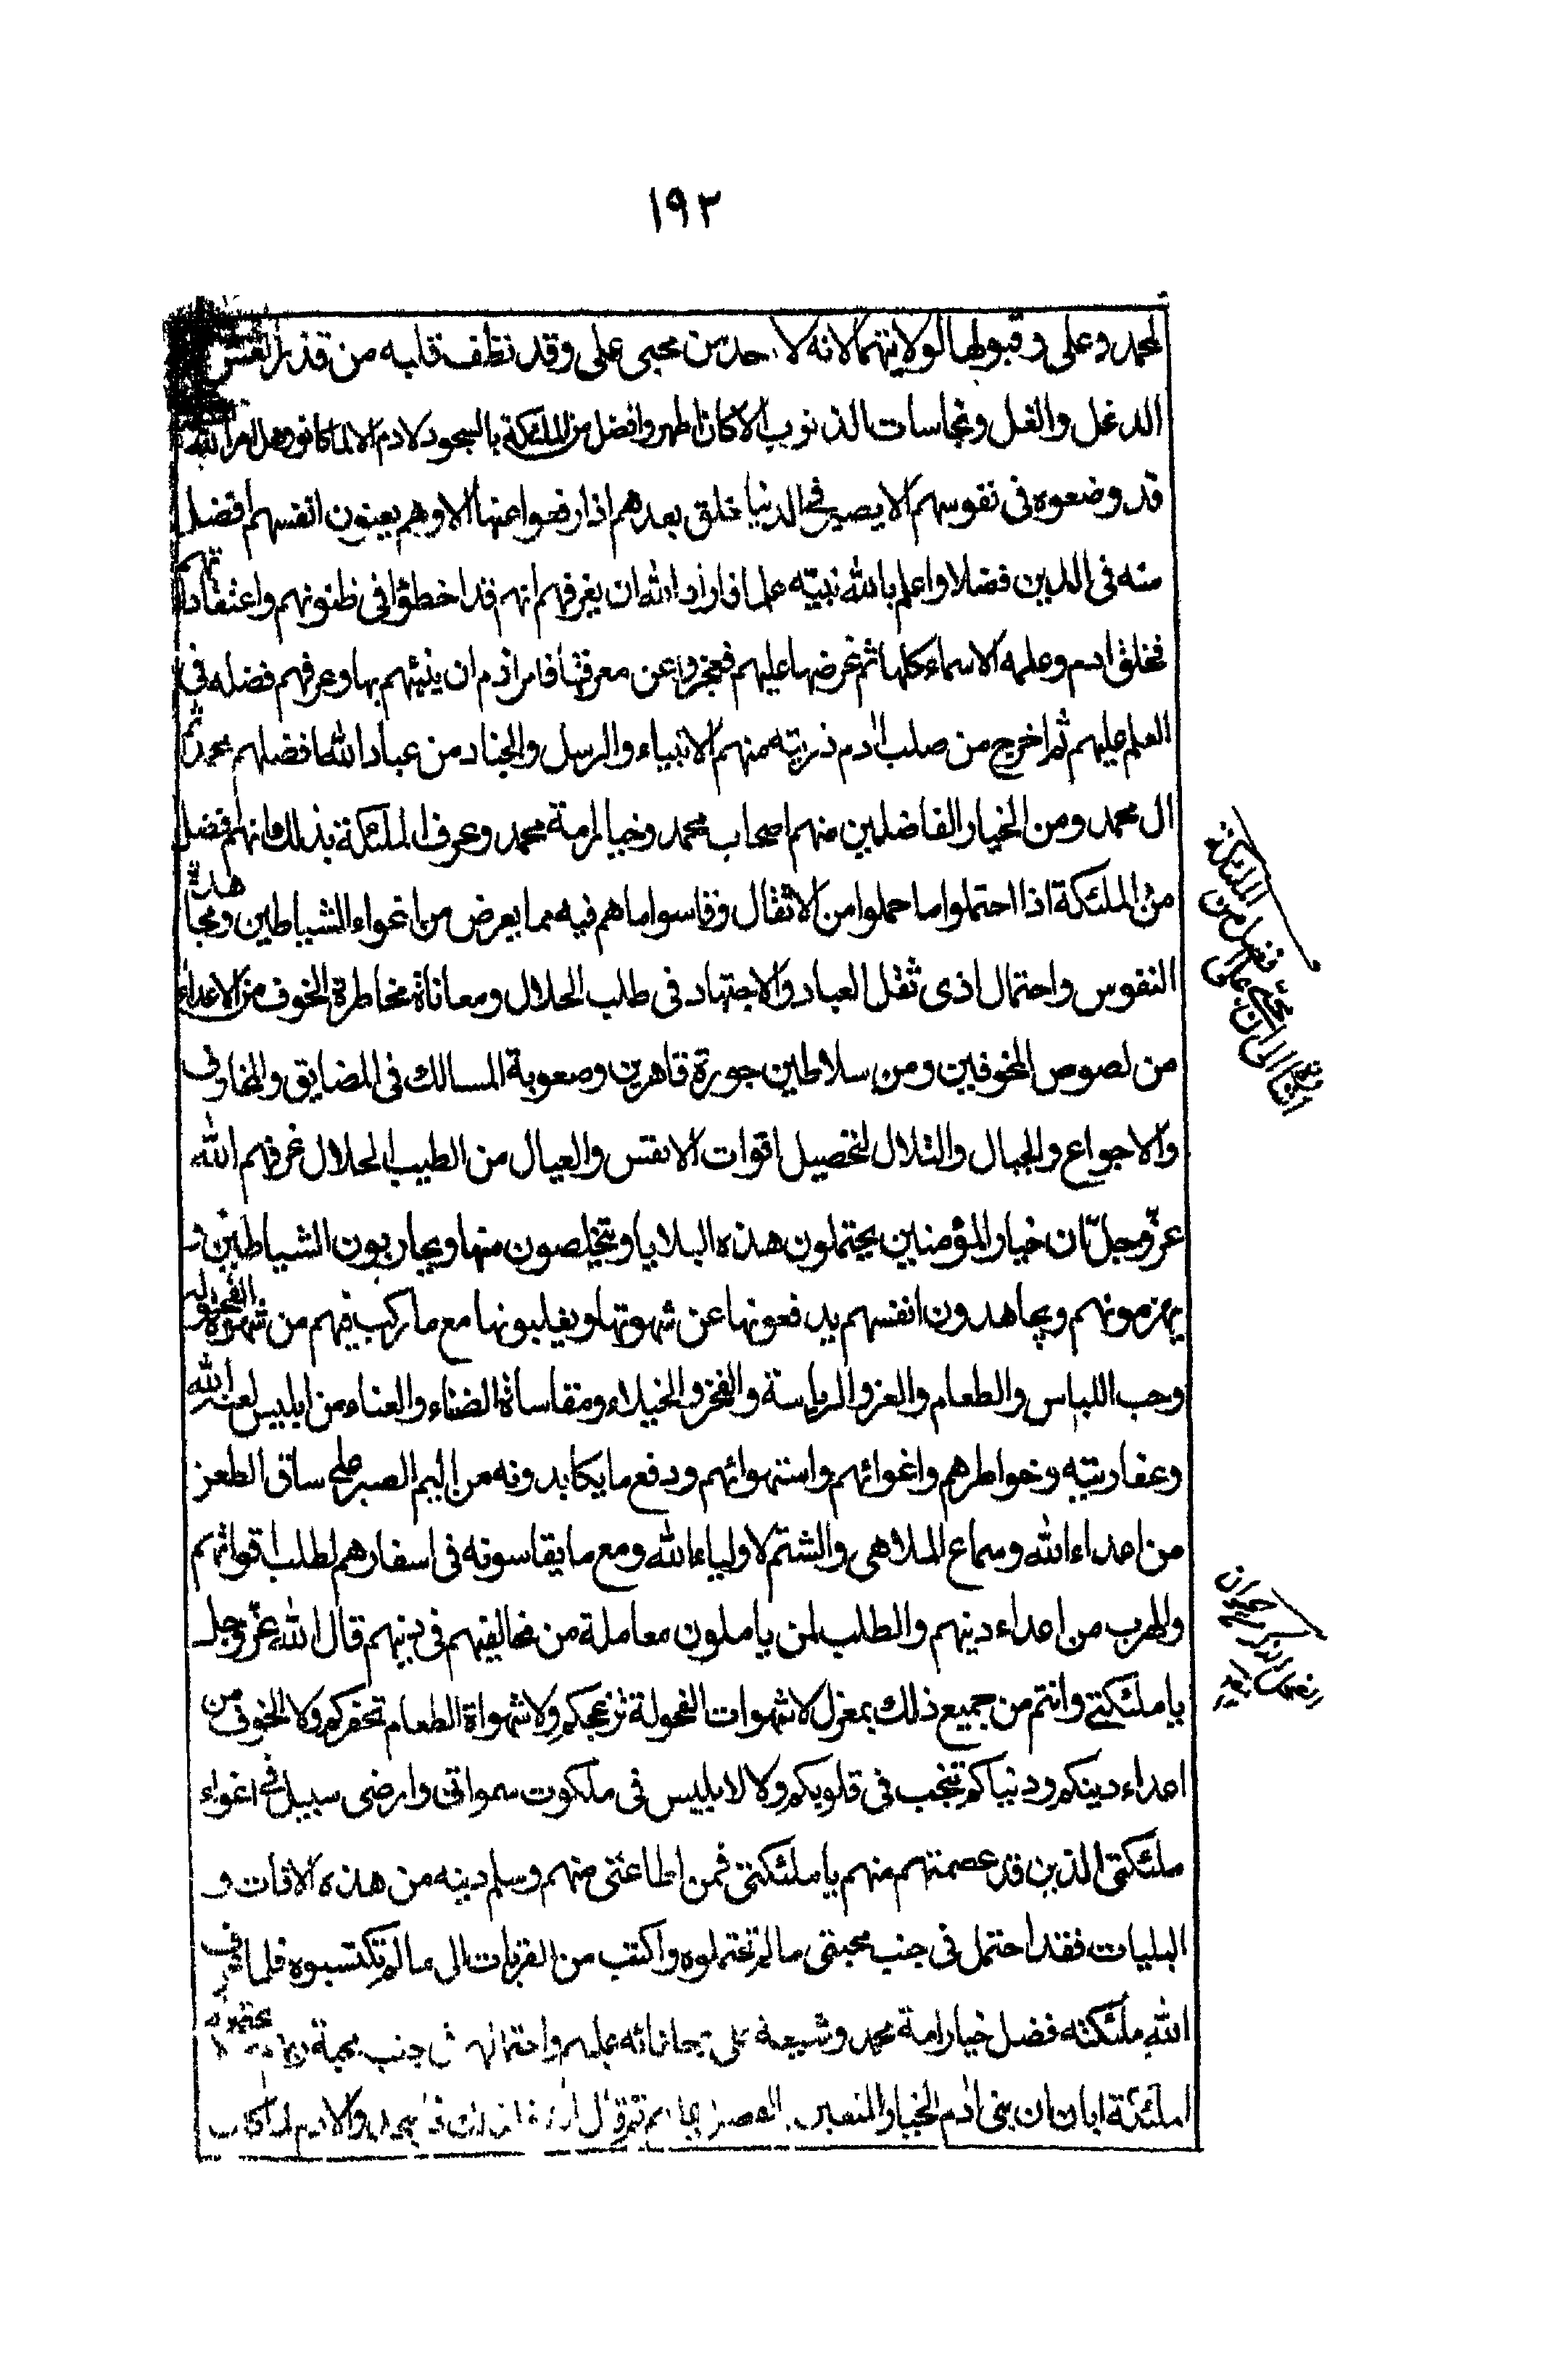 ١٩٢
لمحمد وعلى وقبولها لولايتهما لانه لا احد من محبى على وقد نظف قلبه من قذر الغش
الدغل والغل ونجاسات الذنوب الا كان اطهر وافضل من الملئكة بالسجود لادم الا لما كانوا وهل امر الله
قد وضعوه فى نفوسهم الا يصير فى الدنيا خلق بعدهم اذا رفعوا عنها الا وهم يعنون انفسهم افضل
منه فى الدين فضلا واعلم بالله نبيّه علما فاراد الله ان يعرفهم انهم قد اخطؤا فى ظنونهم واعتقاداتهم
فخلق ادم وعلمه الاسماء كلها ثم عرضها عليهم فعجزوا عن معرفتها فامر ادم ان ينبئهم بها وعرفهم فضله فى
العلم عليهم ثم اخرج من صلب ادم ذريته منهم الانبياء والرسل والخيار من عباد الله افضلهم محمد ثم
ال محمد ومن الخيار الفاضلين منهم اصحاب محمد وخيار امة محمد وعرف الملئكة بذلك انهم افضل
من الملئكة اذا احتملوا ما حملوا من الاثقال وقاسوا ما هم فيه مما يعرض من اغواء الشياطين ومجاهدة
النفوس واحتمال اذى ثقل العباد والاجتهاد فى طلب الحلال ومعاناة مخاطرة الخوف من الاعداء
من لصوص المخوفين ومن سلاطين جورة قاهرين وصعوبة المسالك فى المضايق والمخاوف
والاجواع والجبال والتلال لتحصيل اقوات الانفس والعيال من الطيب الحلال عرفهم الله
عزّ وجلّ ان خيار المؤمنين يحتملون هذه البلايا ويتخلصون منها ويحاربون الشياطين و
يهزمونهم ويجاهدون انفسهم يدفعونها عن شهوتها ويغلبونها مع ما ركب فيهم من شهوة الفحولة
وحب اللباس والطعام والعز والرياسة والفخر والخيلاء ومقاساة الضناء والعناء من ابليس لعنه الله
وعفاريته وخواطرهم واغوائهم واستهوائهم ودفع ما يكابدونه من اليم الصبر على ساق الطعن
من اعداء الله وسماع الملاهى والشتم لاولياء الله ومع ما يقاسونه فى اسفارهم لطلب اقواتهم
والهرب من اعداء دينهم والطلب لمن ياملون معاملة من مخالفيهم فى دينهم قال الله عزّ وجل
يا ملئكتى وانتم من جميع ذلك بمعزل لا شهوات الفحولة تزعجكم ولا شهواة الطعام تحفزكم ولا الخوف من
اعداء دينكم ودنياكم تنخب فى قلوبكم ولا لابليس فى ملكوت سمواتى وارضى سبيل فى اغواء
ملئكتى الذين قد عصمتهم منهم يا ملئكتى فمن اطاعنى منهم وسلم دينه من هذه الافات و
البليات فقد احتمل فى جنب محبتى ما لم تحتملوه واكتب من القربات الى ما لم تكتسبوه فلما عرف
الله ملئكته فضل خيار امة محمد وشيعة على عليهم واحتمالهم فى جنب محبة
الملئكة ابان ان بنى ادم الخيار المتقين